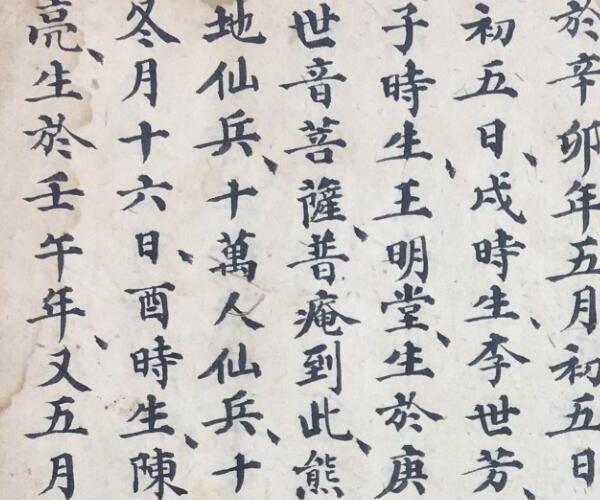 於辛卯年五月初五日
初五日、戌時生、李世芳、
子時生、王明堂、生於庚
世音菩薩、普庵到此、熊
地仙兵、十萬人仙兵、十
冬月十六日、酉時生、陳
亮、生於壬午年、又五月